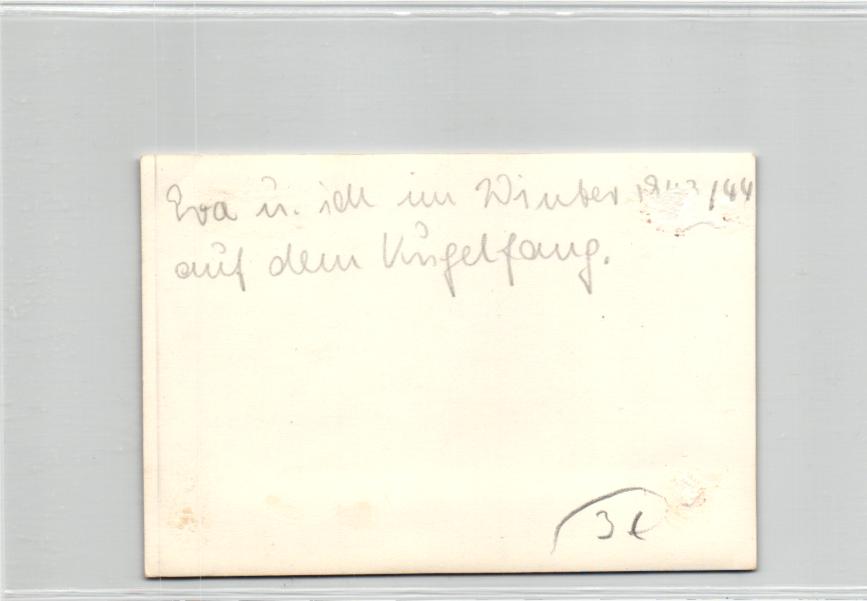 Eva u. ich im Winter 1943/44
auf dem Kugelfang.
3€